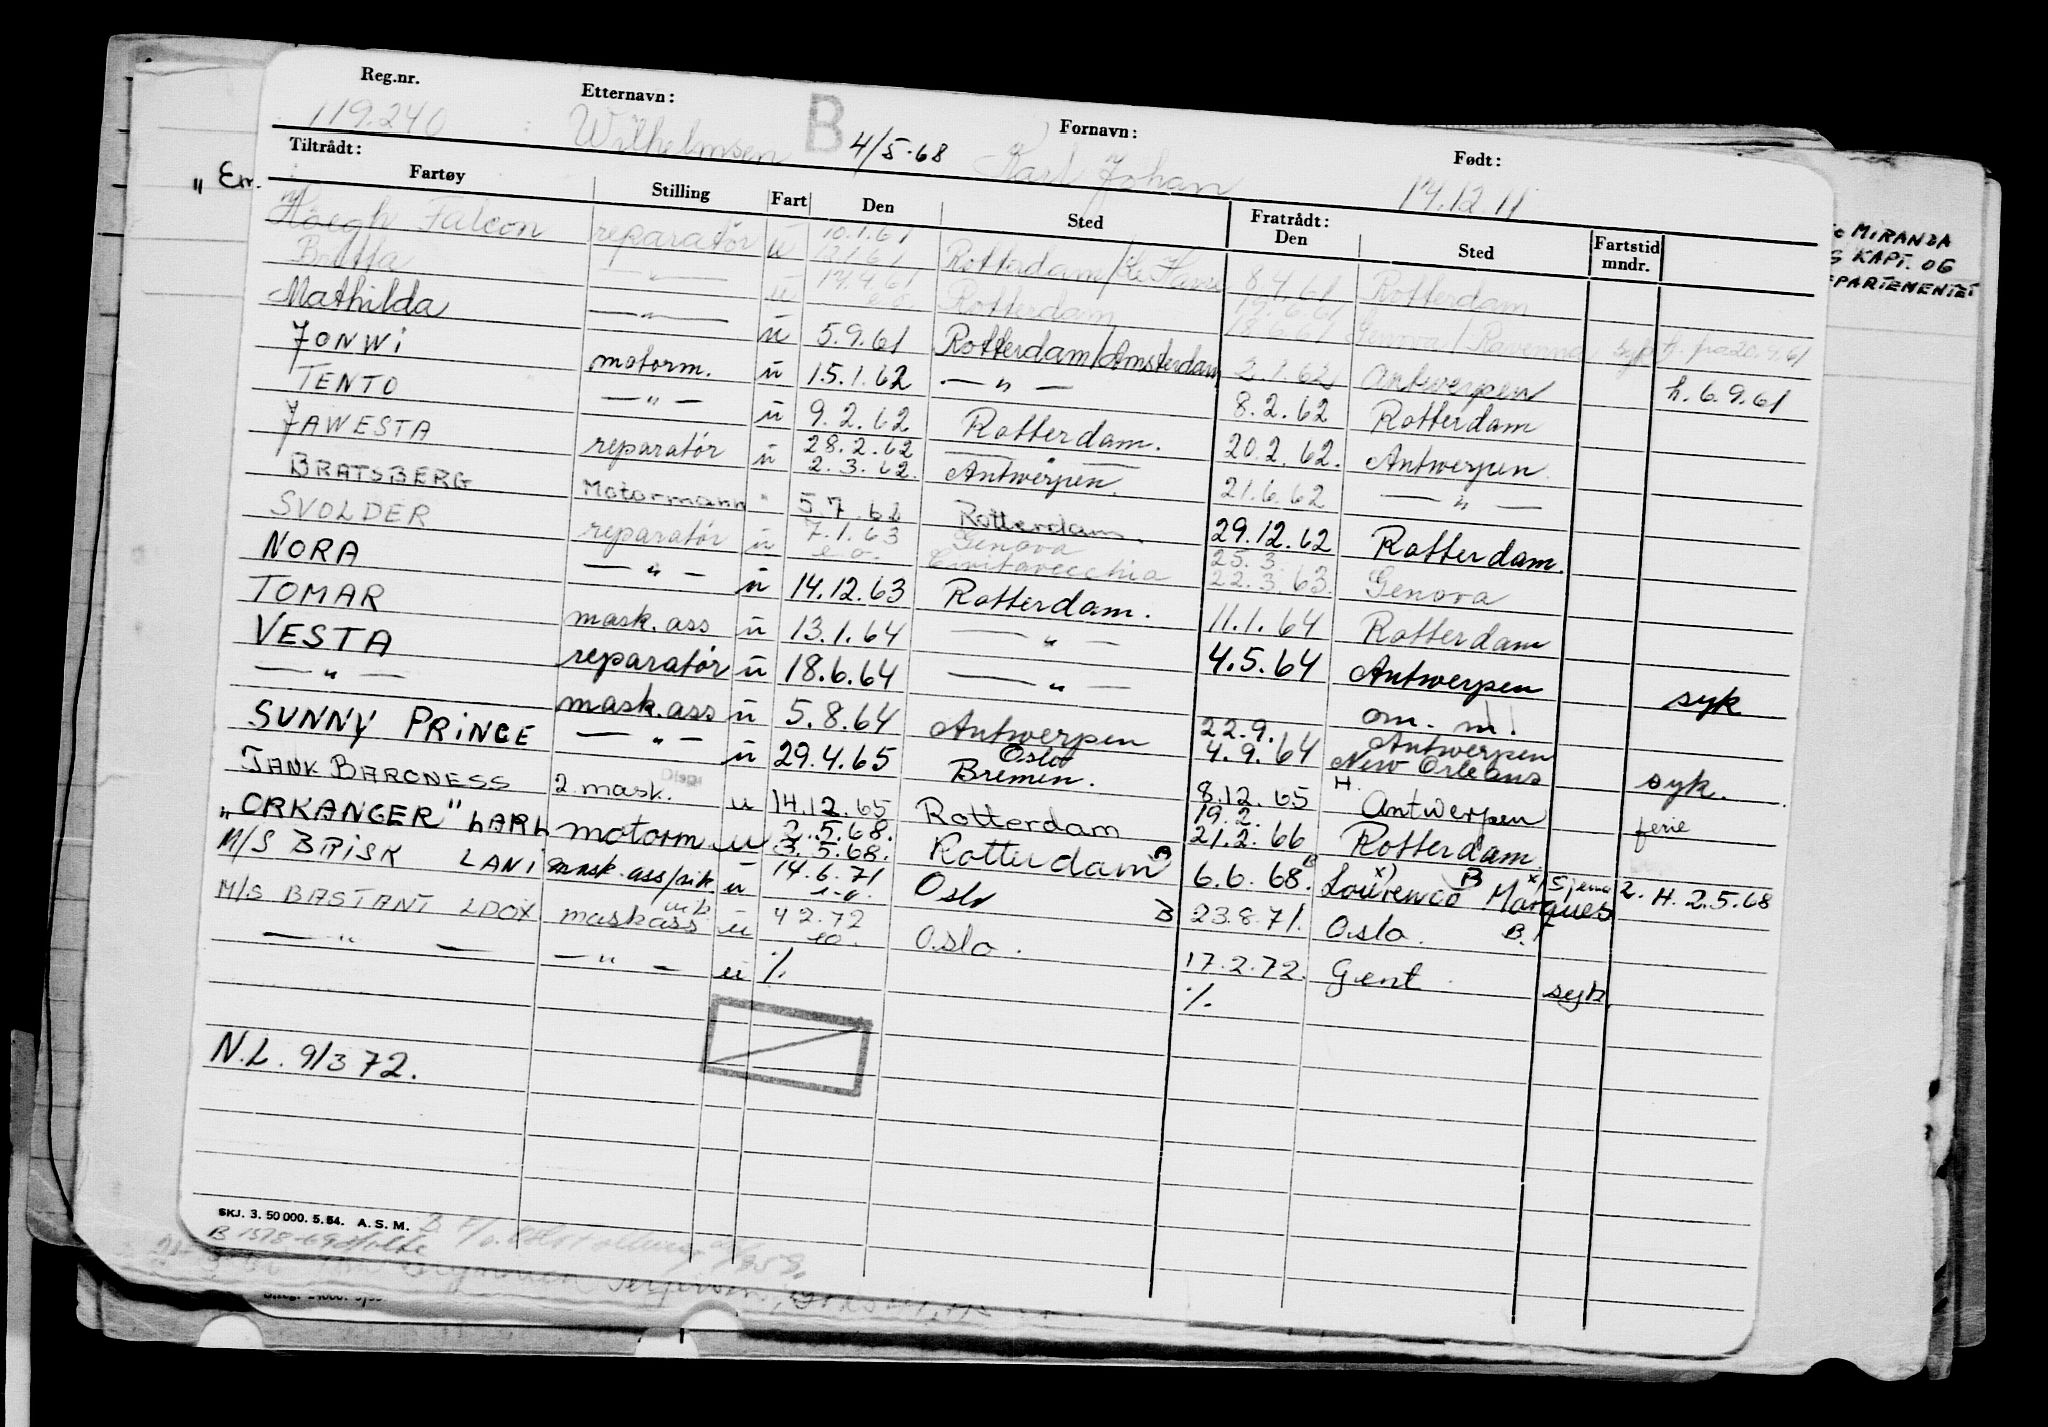 Reg.nr. Etternavn: Fornavn: Født:
119.240 Wilhelmsen B 4/5-68 Karl Johan 14.12.11
Tiltrådt: Fratrådt:
Fartøy Stilling Fart Den Sted Den Sted Fartstid mndr.
Høegh Falcon reparatør u 10.1.61 Rotterdam 8.4.61 Rotterdam
Britta — " — u 14.4.61 e.o. Rotterdam 18.6.61 Genova / Ravenna
Mathilda — " — u 5.9.61 Rotterdam/Amsterdam 2.1.62 Antwerpen h. 6.9.61
JONWI motorm. u 15.1.62 — " — 8.2.62 Rotterdam
TENTO — " — u 9.2.62 Rotterdam. 20.2.62. Antwerpen
JAWESTA reparatør u 28.2.62 2.3.62. Antwerpen. 21.6.62 — " —
BRATSBERG Motormann " 5.7.62 Rotterdam. 29.12.62 Rotterdam.
SVOLDER reparatør u 7.1.63 e.o. Genova Civitavecchia 25.3. 22.3.63. Genova
NORA — " — u 14.12.63 Rotterdam. 11.1.64 Rotterdam
TOMAR mask.ass u 13.1.64 — " — 4.5.64 Antwerpen syk
VESTA reparatør u 18.6.64 — " — om. m!
— " — mask.ass u 5.8.64 Antwerpen 22.9. 4.9.64 Antwerpen New Orleans syk.
SUNNY PRINCE — " — u 29.4.65 Oslo Bremen. 8.12.65 H. Antwerpen ferie
TANK BARONESS 2.mask. Disp. u 14.12.65 Rotterdam 19.2. 21.2.66 Rotterdam.
"ORKANGER" LARL motorm u 2.5.68. 3.5.68. Rotterdam B 6.6.68. B Lourenco Marques 2. H. 2.5.68
M/S BRISK LANI mask.ass/rik. u 14.6.71 e.o. Oslo B 23.8.71. Oslo. B.
M/S BASTANT LDOX maskass u 4 2.72 eo. Oslo. 17.2.72. Gent. syk.
— " — — " — u %. %.
N.L. 9/3 72.
SKJ. 3. 50 000. 5. 54. A. S. M.
„ Em.
MIRANDA
KAPT. OG